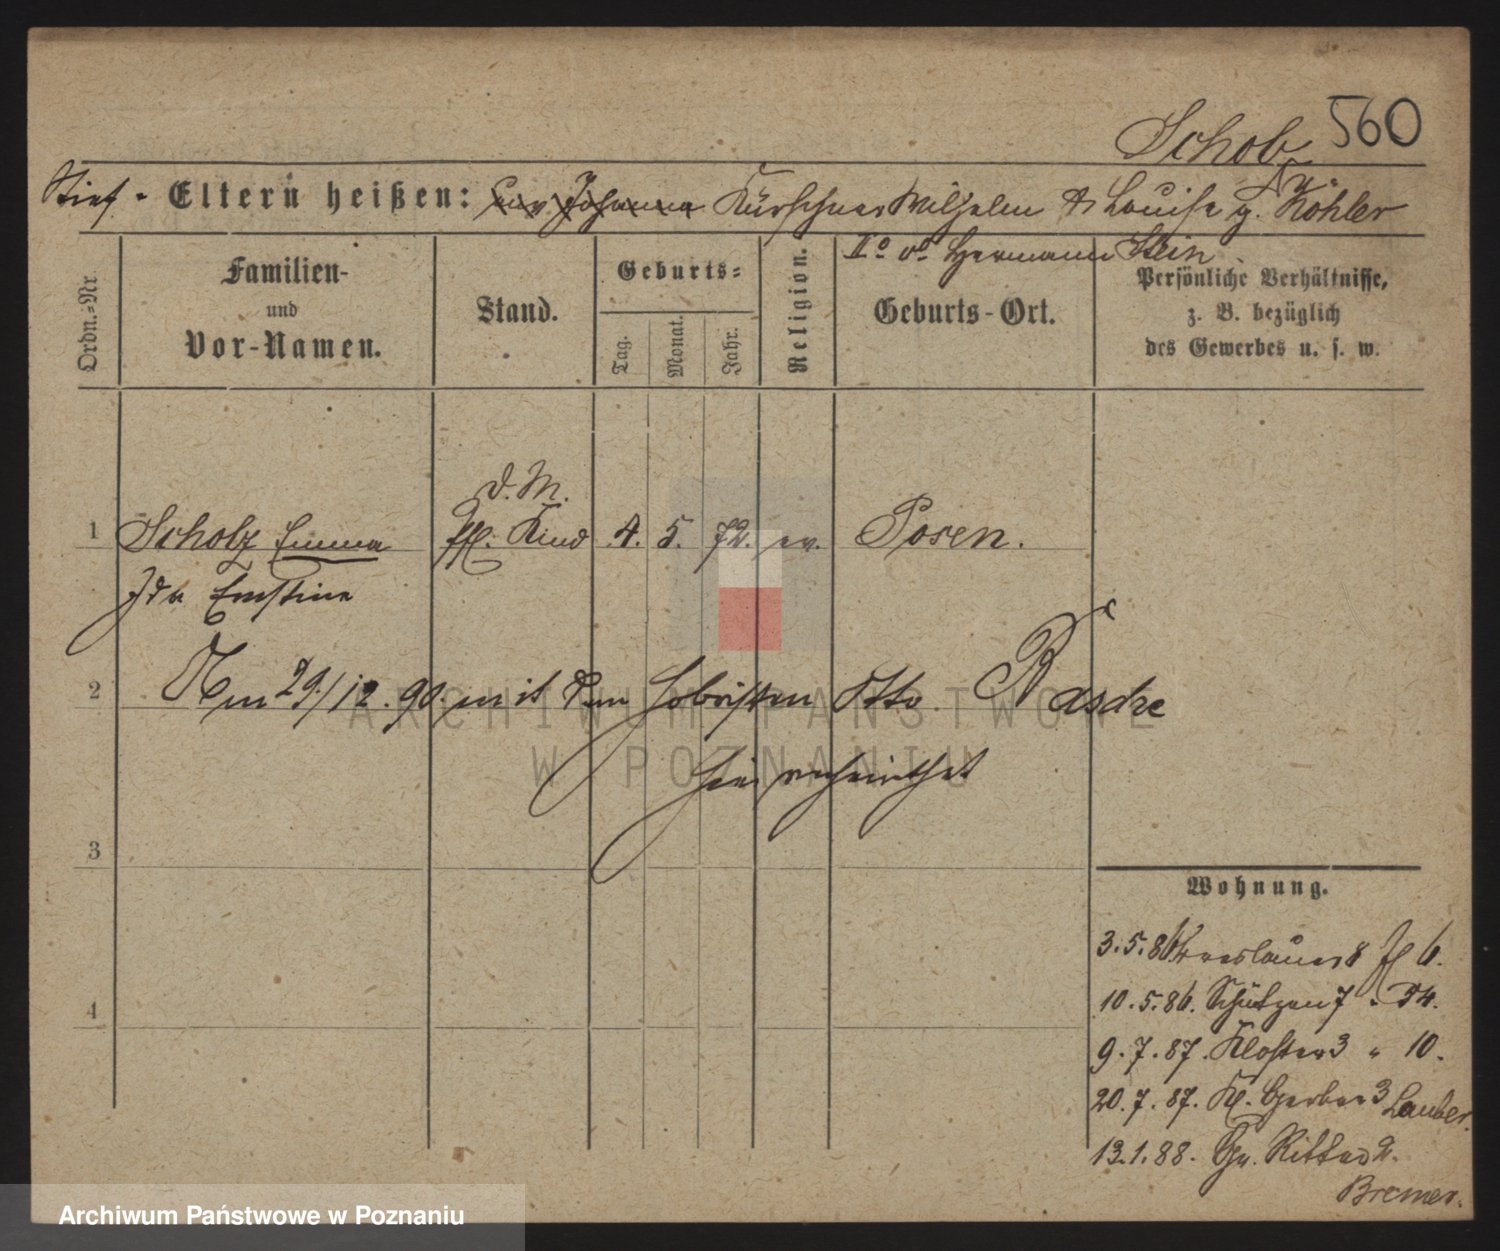 Scholz 560
Stief- Eltern heißen: Kürschner Wilhelm & Louise g. Köhler
II° v° Hermann Stein
Ordn.-Nr
Familien-
und
Vor-Namen.
Stand.
Geburts-
Tag.
Monat.
Jahr.
Religion.
Geburts-Ort.
Persönliche Verhältnisse,
z. B. bezüglich
des Gewerbes u. s. w.
d. M.
1 Scholz Emma Pfl. Kind 4. 5. 72. ev. Posen.
Ida Ernstine
2 Am 29/12.90. mit dem Hoboisten Otto Raschke
hier verheirathet
3
4
Wohnung.
3.5.86 Breslauer 8 6.
10.5.86. Schützen 7 " 54.
9.7.87. Kloster 3 " 10.
20.7.87. Kl. Gerber 3 Lauber.
13.1.88. Gr. Ritter 2.
Bremer.
ARCHIWUM PAŃSTWOWE
W POZNANIU
Archiwum Państwowe w Poznaniu